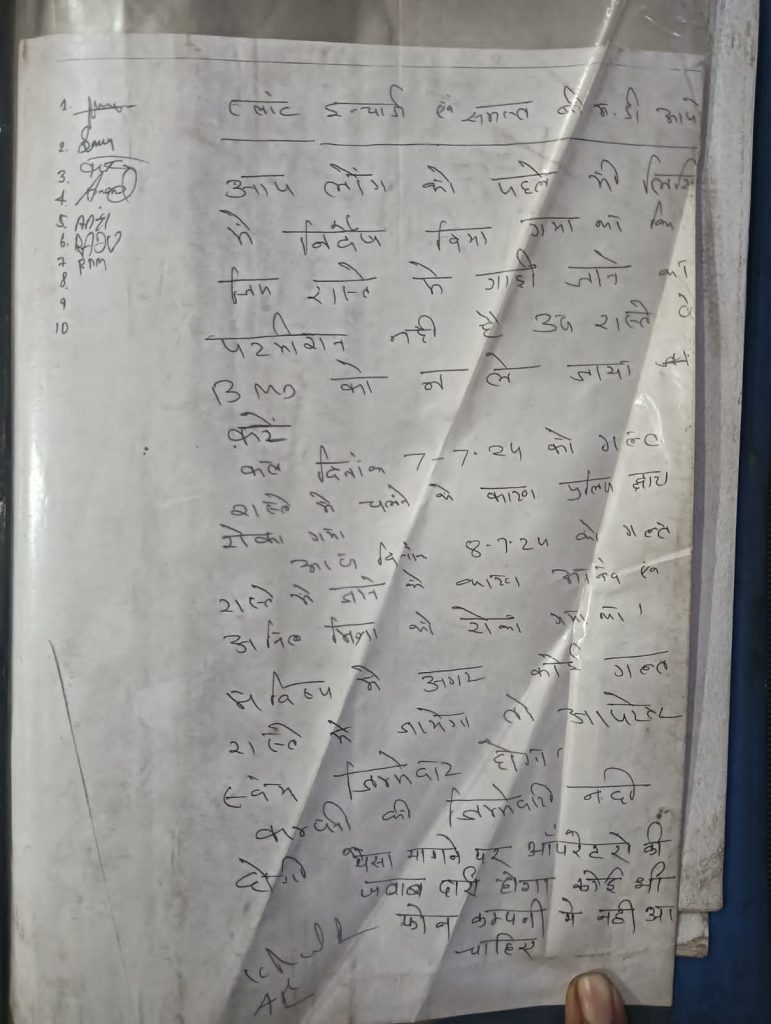 1.
2.
3.
4.
5. ANJI
6. RAJU
7 RAM
8
9
10
प्लांट इन्चार्ज एवं समस्त बी.म.डी आपरे
आप लोंग को पहले भी लिखि
मे निर्देष दिया गया था कि
जिस रास्ते मे गाड़ी जाने का
परमीशन नही है उस रास्ते से
BMD को न ले जाया
करें
कल दिनांक 7-7-24 को गलत
रास्ते मे चलने के कारण पुलिस द्वारा
रोका गया
आज दिनांक 8-7-24 को गलत
रास्ते मे जाने के कारण एवं
अनिल मिश्रा को रोका गया था।
भविष्य मे अगर कोई गलत
रास्ते मे जायेगा तो आपरेटर
स्वंम जिम्मेदार होगा
कम्पनी की जिम्मेदारी नही
होगी पैसा मागने पर ऑपरेटरो की
जवाब दारी होगा कोई भी
फोन कम्पनी मे नही आ
चाहिए